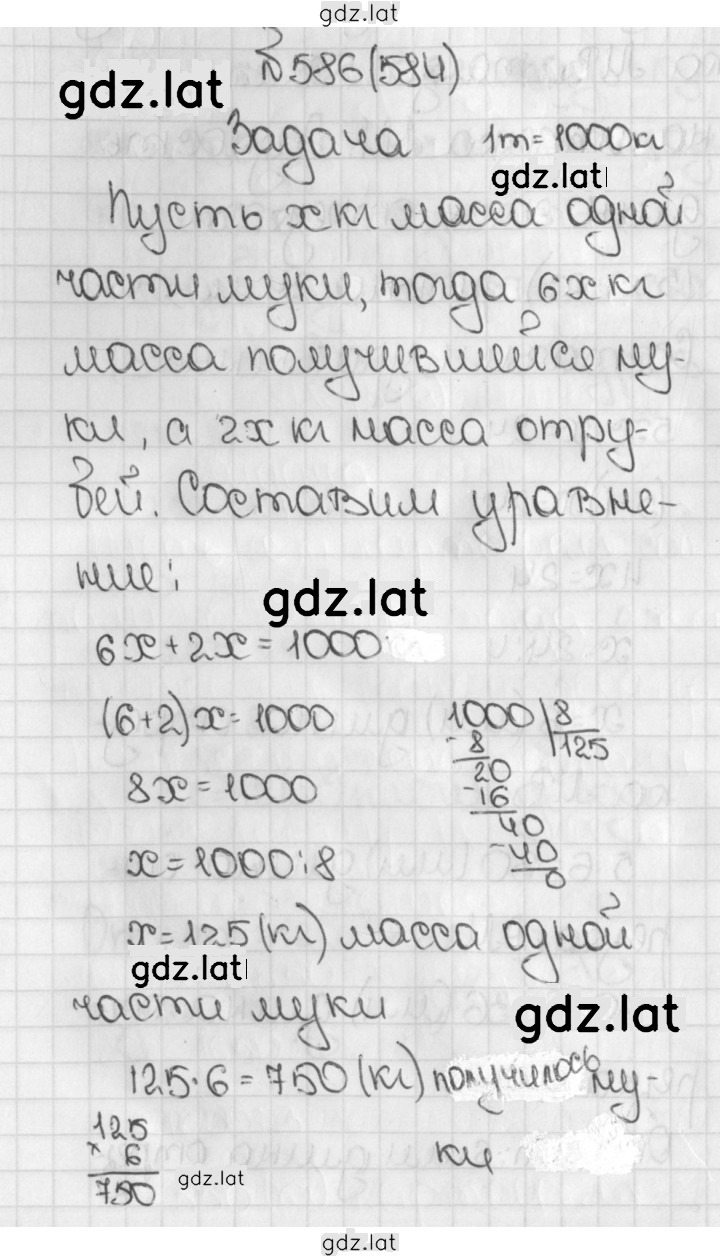 gdz.lat
№586(584)
gdz.lat
Задача 1т=1000кг
gdz.lat
Пусть х кг масса одной
части муки, тогда 6х кг
масса получившейся му-
ки, а 2х кг масса отру-
бей. Составим уравне-
ние:
gdz.lat
6х+2х=1000
(6+2)х=1000
8х=1000
х=1000:8
1000 8
-8 125
20
-16
40
-40
0
х=125(кг) масса одной
gdz.lat
части муки
gdz.lat
125·6=750(кг) получилось му-
ки
125
× 6
750
gdz.lat
gdz.lat